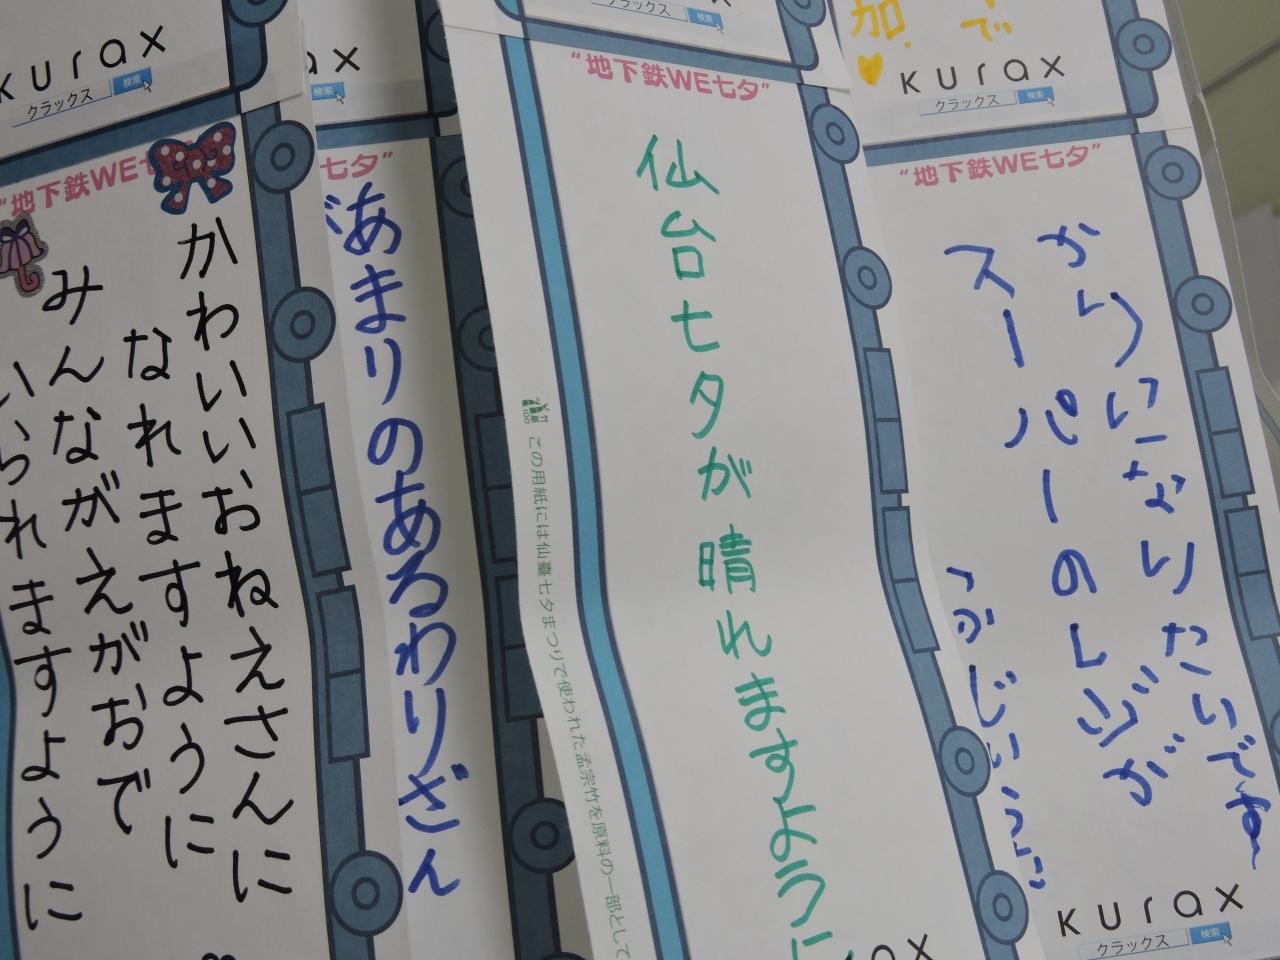 kurax
クラックス 検索
"地下鉄WE七
かわいいおねえさんに
なれますように
みんながえがおで
いられますように
検索
七夕"
あまりのあるわりざん
クラックス 検索
"地下鉄WE七夕"
仙台七夕が晴れますように
この用紙には仙臺七夕まつりで使われた孟宗竹を原料の一部として
加
で
kurax
クラックス 検索
"地下鉄WE七夕"
スーパーのレジが
かりいなりたいです
kurax
クラックス 検索